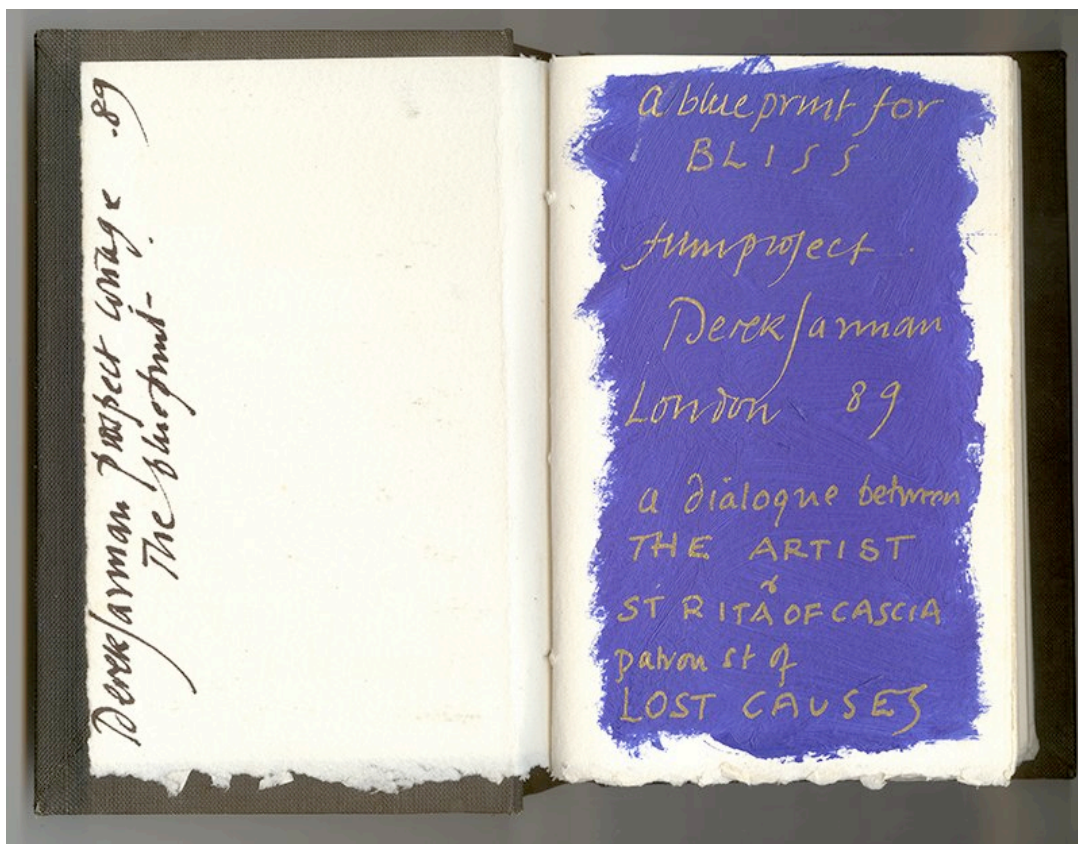 Derek Jarman prospect cottage .89
The blueprint-
a blueprint for
BLISS
filmproject .
Derek Jarman
London 89
a dialogue between
THE ARTIST
&
ST RITA OF CASCIA
patron st of
LOST CAUSES